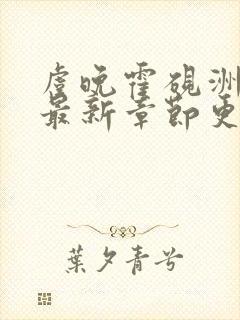 虞晚霍砚洲
最新章节更
葉夕青兮